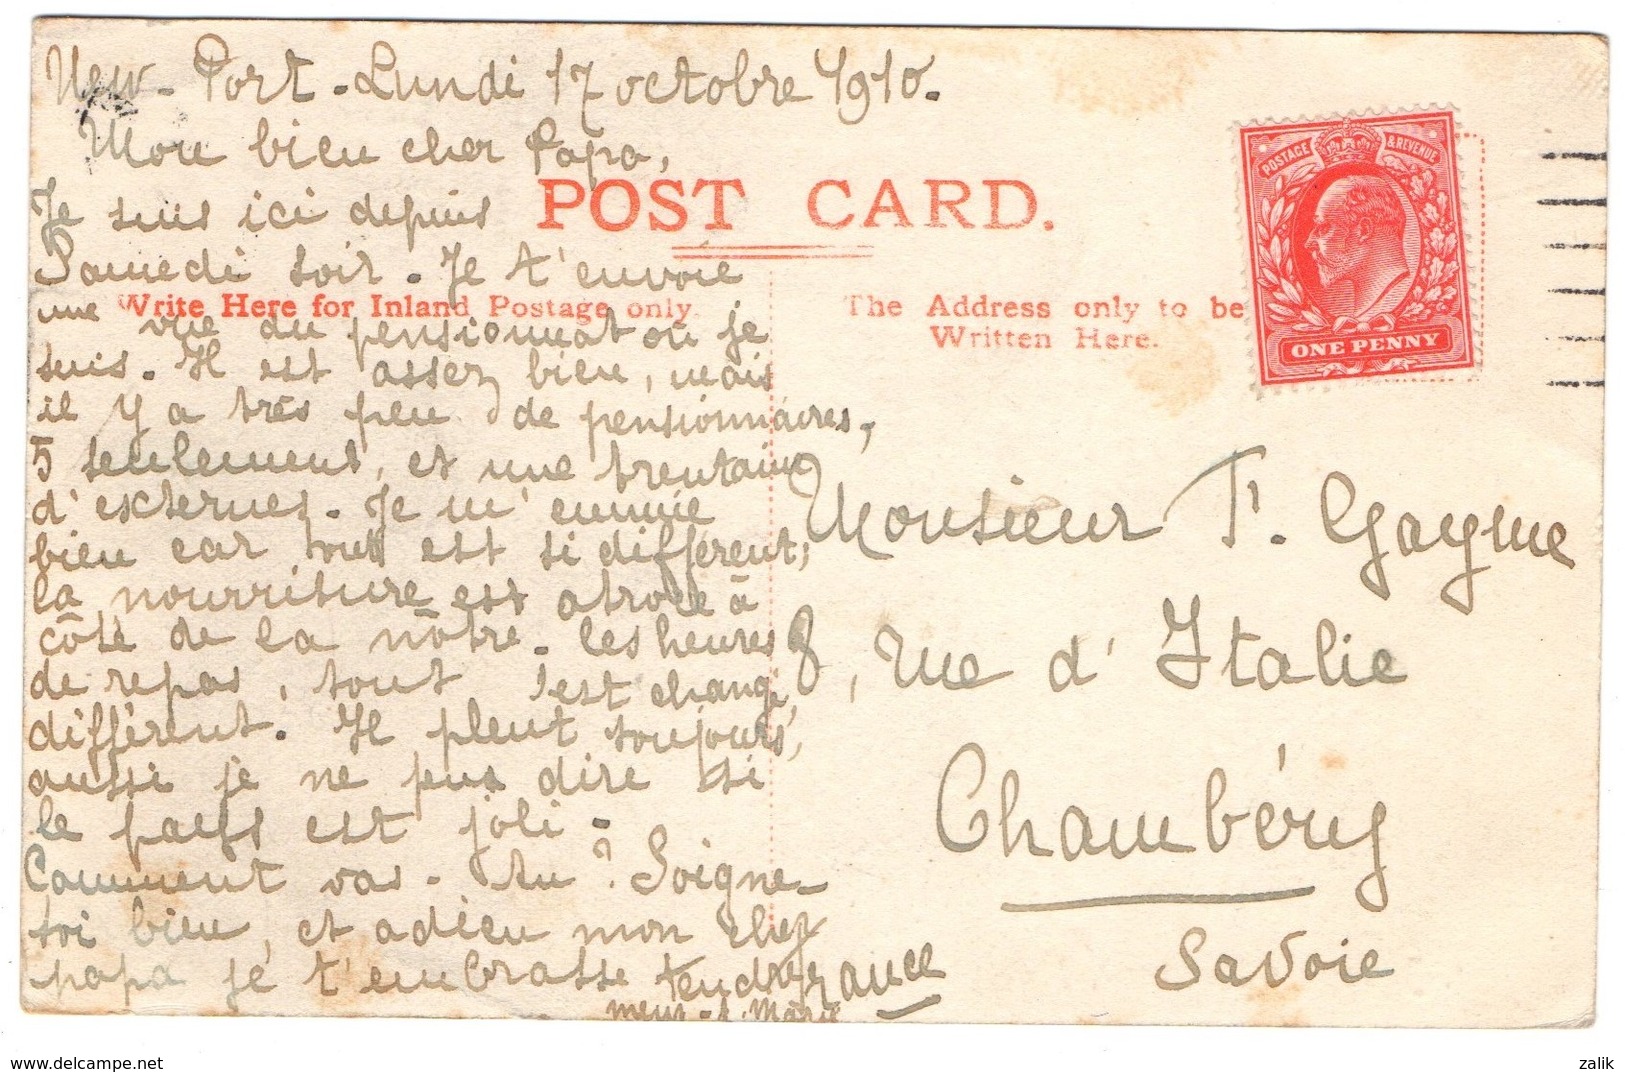 New-Port-Lundi 17 octobre 1910.
Mon bien cher Papa,
Je suis ici depuis
Samedi soir. Je t'envoie
une vue du pensionnat où je
suis. Il est assez bien, mais
il y a très peu de pensionnaires,
5 seulement, et une trentaine
d'externes. Je m'ennuie
bien car tout est si différent,
la nourriture est atroce à
côté de la nôtre. les heures
de repas, tout est changé,
différent. Il pleut toujours,
aussi je ne puis dire si
le pays est joli.
Comment vas-tu? Soigne-
toi bien, et adieu mon cher
papa je t'embrasse tendre
ment. Marie
POST CARD.
Write Here for Inland Postage only.
The Address only to be
Written Here.
POSTAGE & REVENUE
ONE PENNY
Monsieur F. Gayme
8, rue d'Italie
Chambéry
Savoie
France
www.delcampe.net
zalik